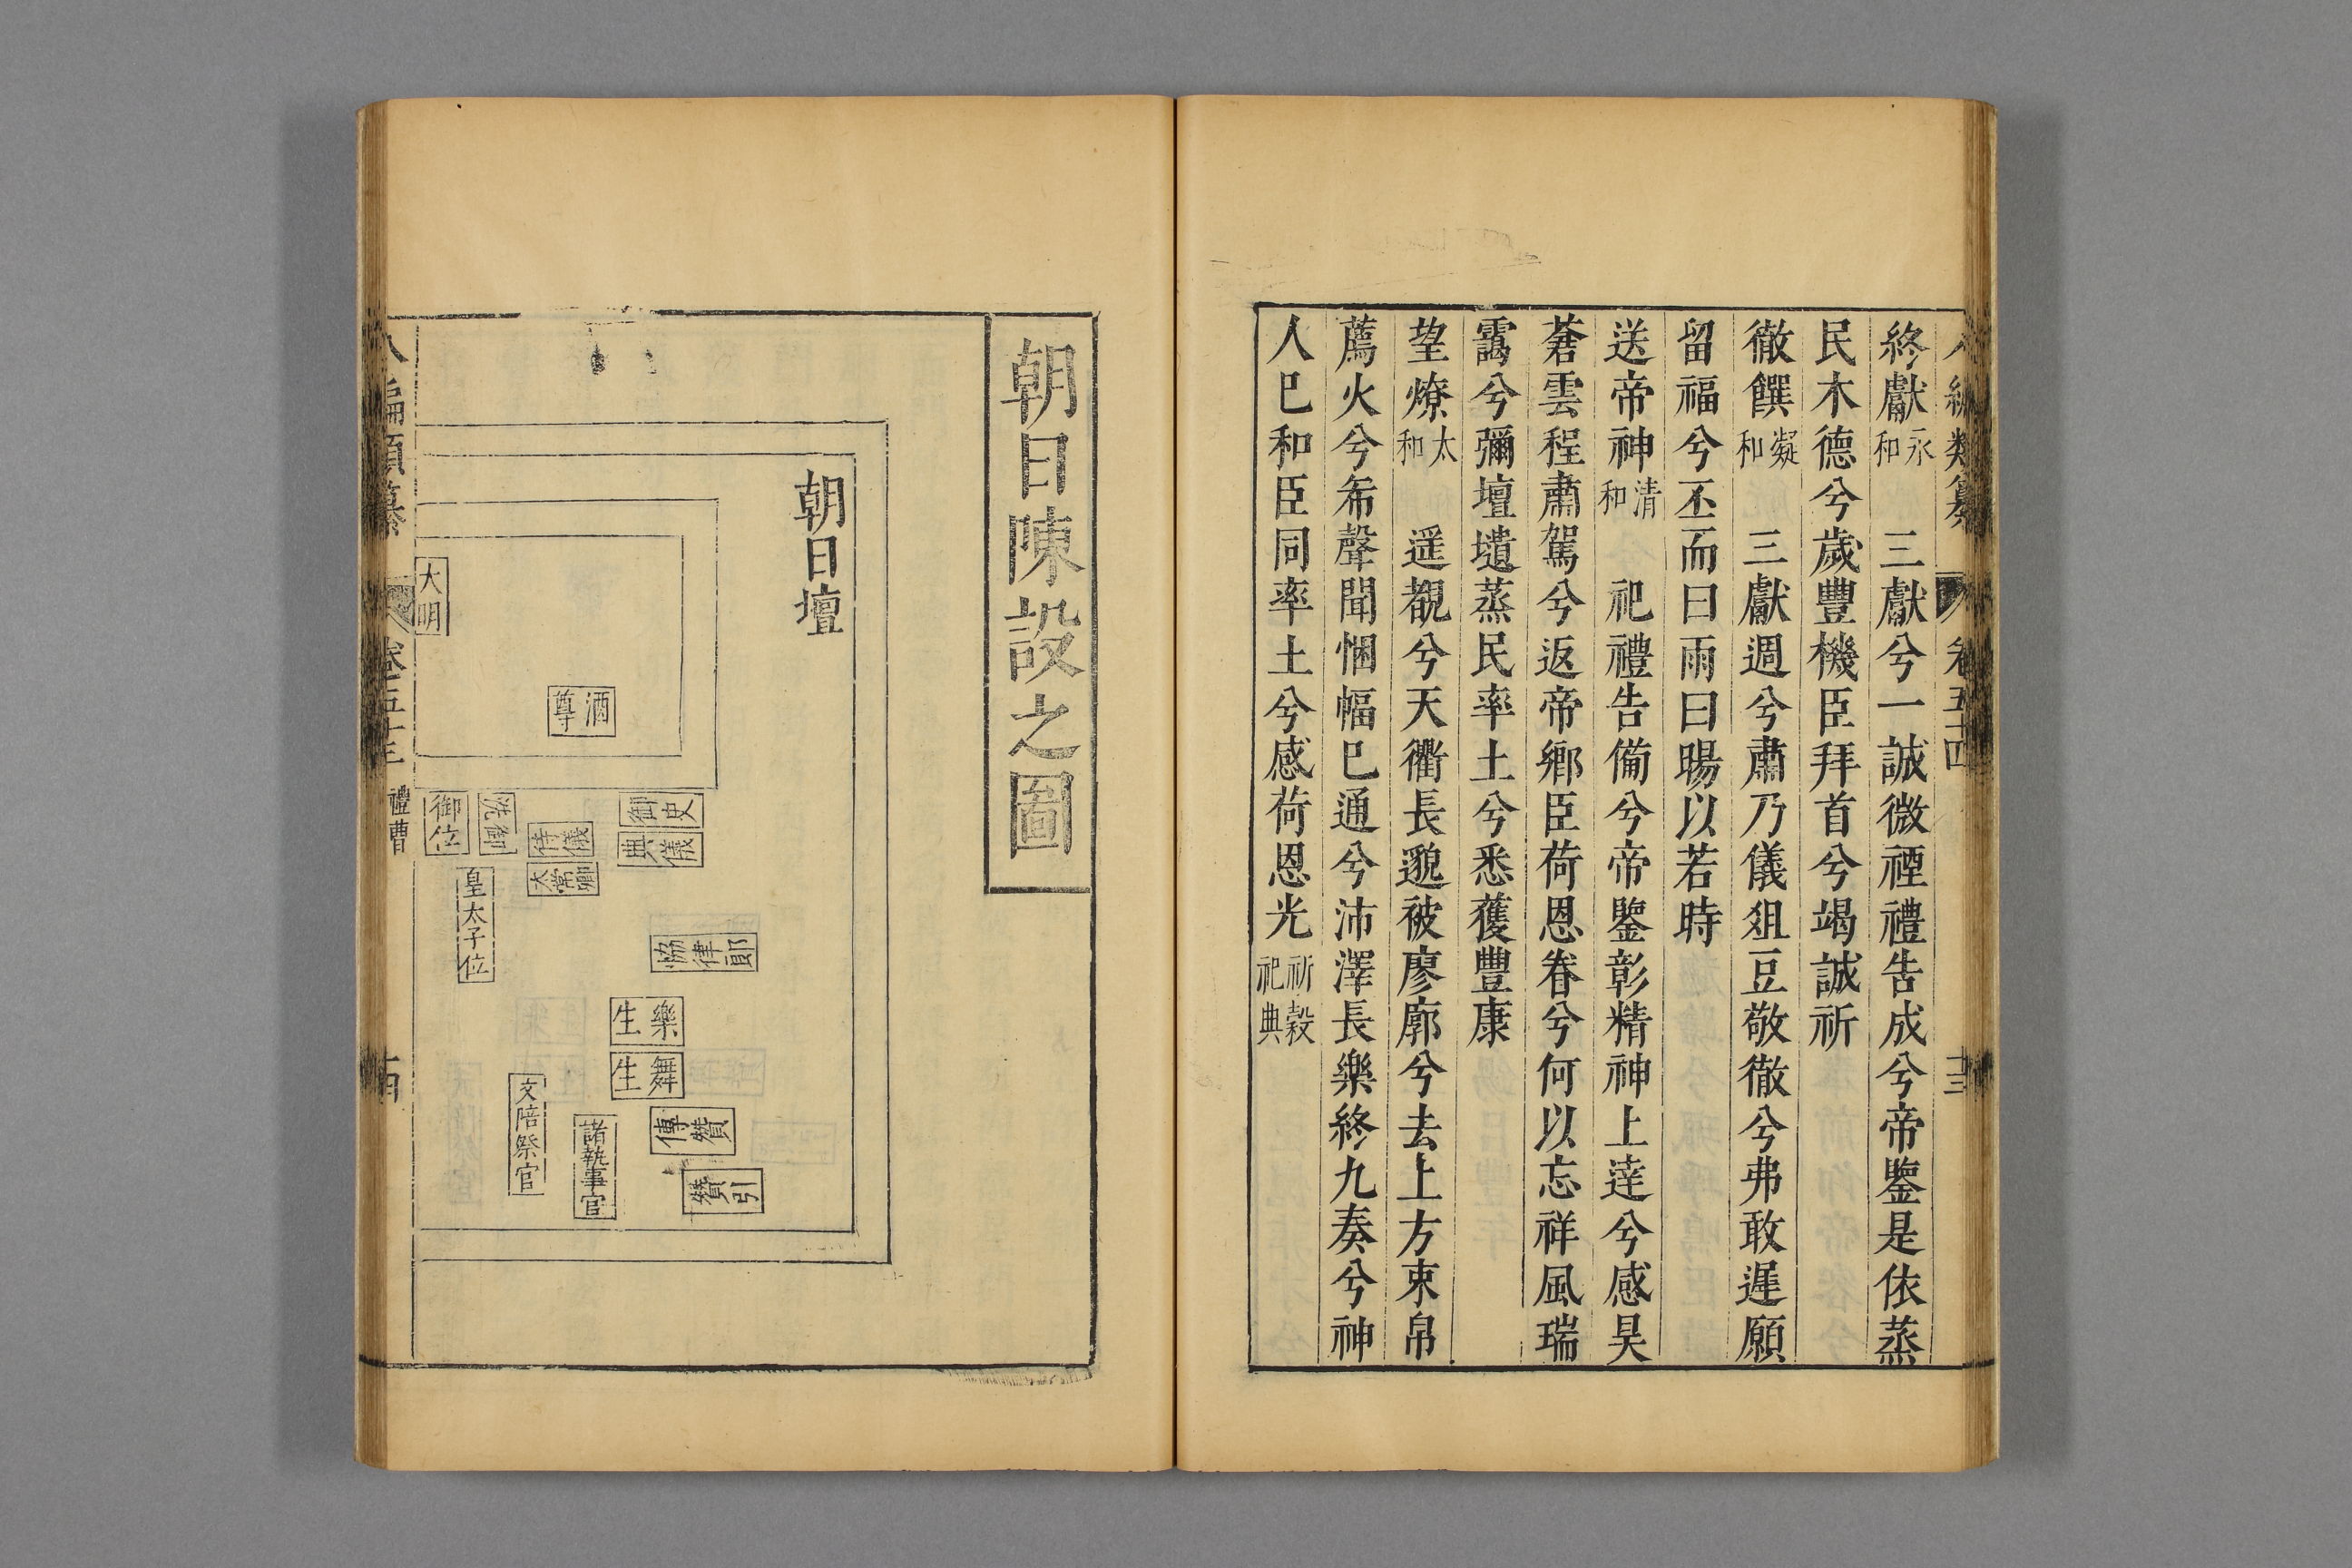 編類纂 卷五十四 十三
終獻永和 三獻兮一誠微禋禮告成兮帝鑒是依蒸
民木德兮歲豐機臣拜首兮竭誠祈
徹饌凝和 三獻週兮肅乃儀俎豆敬徹兮弗敢遲願
留福兮丕而曰雨曰暘以若時
送帝神清和 祀禮告備兮帝鑒彰精神上達兮感昊
蒼雲程肅駕兮返帝鄉臣荷恩眷兮何以忘祥風瑞
靄兮彌壇壝蒸民率土兮悉獲豐康
望燎太和 遥覩兮天衢長邈被廖廓兮去上方束帛
薦火兮希聲聞悃幅已通兮沛澤長樂終九奏兮神
人巳和臣同率土兮感荷恩光祈穀祀典
朝日陳設之圖
朝日壇
大明
酒尊
御史
典儀
侍儀
太常卿
御洗
御位
皇太子位
協律郎
樂生
舞生
傳贊
贊引
諸執事官
文陪祭官
八編類纂 卷五十 禮曹